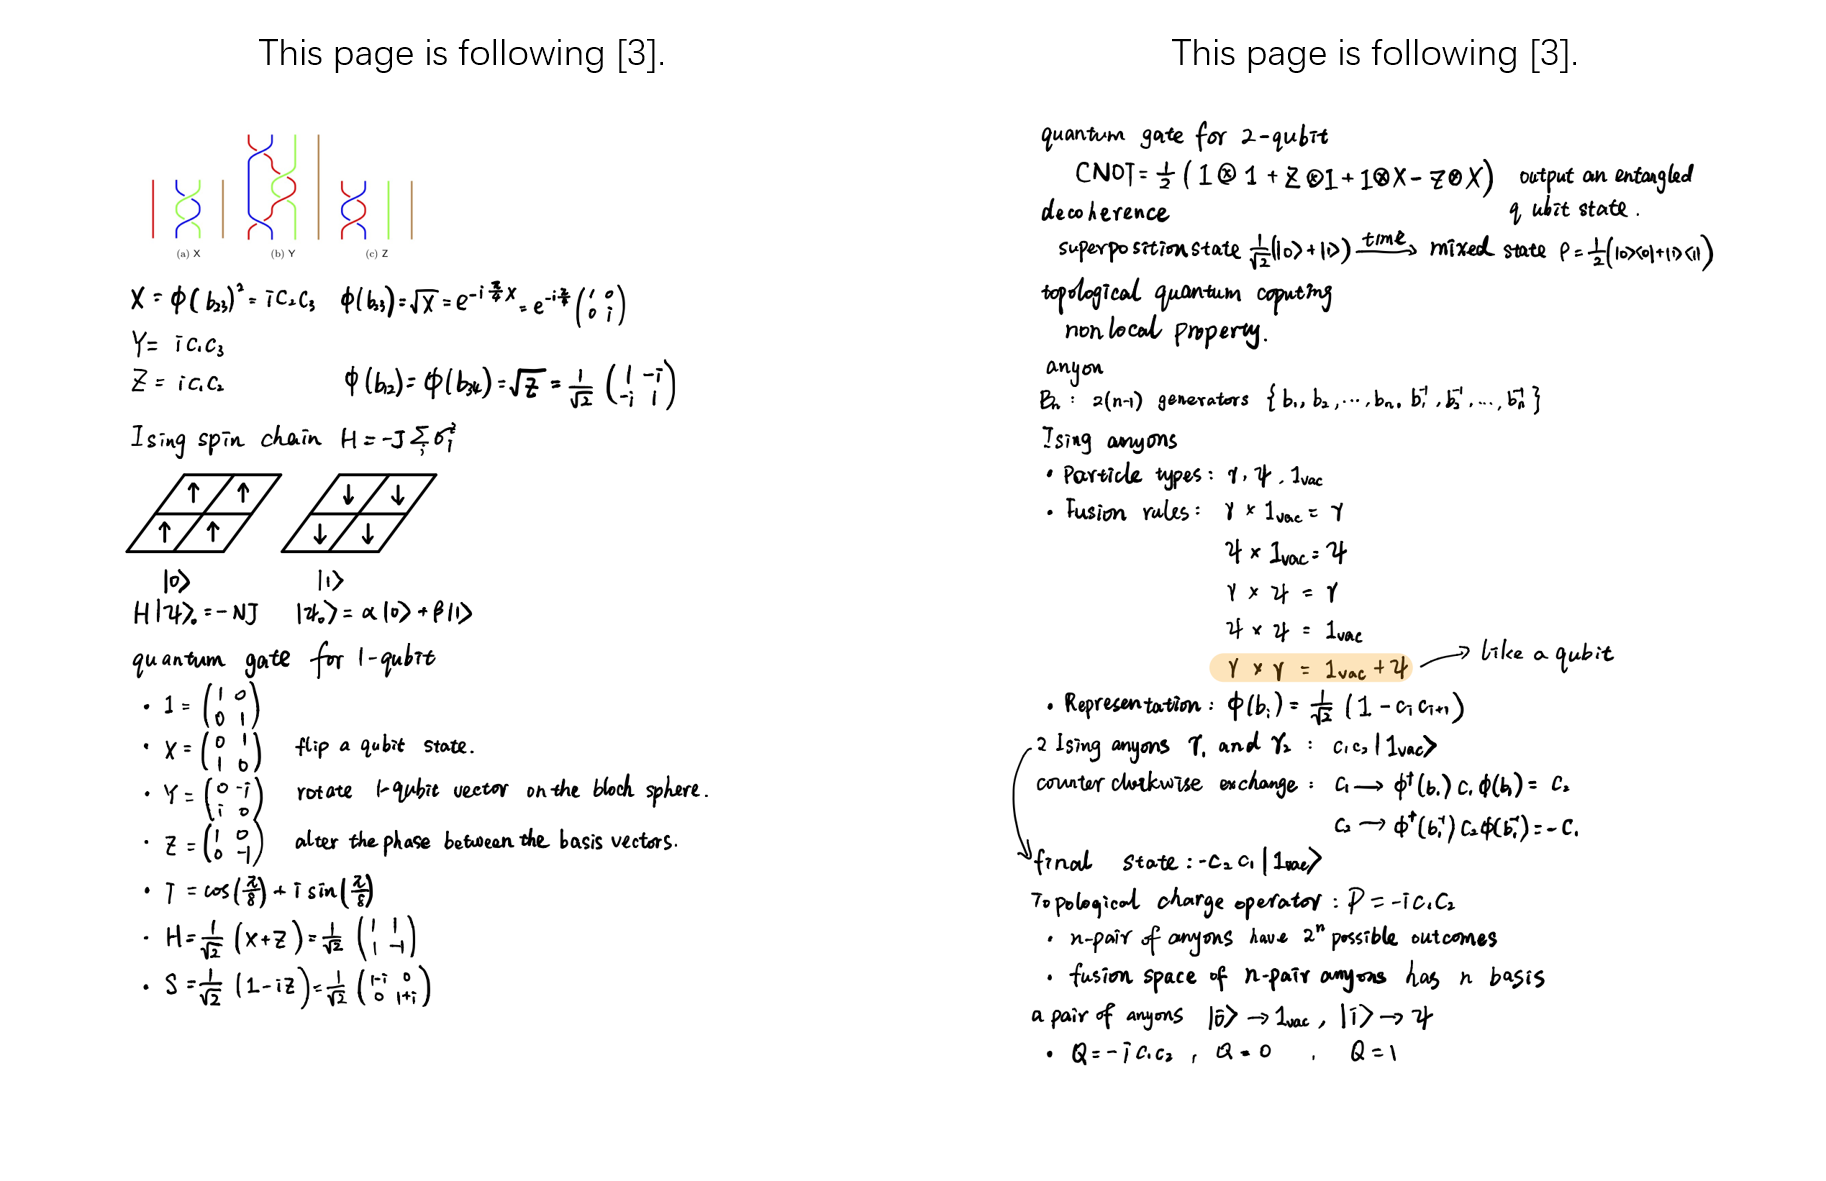 This page is following [3].
(a) X
(b) Y
(c) Z
X = ϕ(b₂₃)² = i c₂c₃   ϕ(b₂₃) = √X = e^{-i π/4 X} = e^{-i π/4} (1 0; 0 i)
Y = i c₁c₃
Z = i c₁c₂   ϕ(b₁₂) = ϕ(b₃₄) = √Z = 1/√2 (1 -i; -i 1)
Ising spin chain H = -J Σᵢ σᵢᶻ
↑ ↑ ↓ ↓
↑ ↑ ↓ ↓
|0> |1>
H|ψ>₀ = -NJ   |ψ₀> = α|0> + β|1>
quantum gate for 1-qubit
· 1 = (1 0; 0 1)
· X = (0 1; 1 0) flip a qubit state.
· Y = (0 -i; i 0) rotate 1-qubit vector on the bloch sphere.
· Z = (1 0; 0 -1) alter the phase between the basis vectors.
· T = cos(π/8) + i sin(π/8)
· H = 1/√2 (X+Z) = 1/√2 (1 1; 1 -1)
· S = 1/√2 (1-iZ) = 1/√2 (1-i 0; 0 1+i)
This page is following [3].
quantum gate for 2-qubit
CNOT = 1/2 (1⊗1 + Z⊗1 + 1⊗X - Z⊗X) output an entangled
qubit state.
decoherence
superposition state 1/√2(|0>+|1>) —time→ mixed state ρ = 1/2(|0><0|+|1><1|)
topological quantum coputing
nonlocal property.
anyon
Bₙ : 2(n-1) generators {b₁, b₂, ···, bₙ, b₁⁻¹, b₂⁻¹, ..., bₙ⁻¹}
Ising anyons
· Particle types: γ, ψ, 1vac
· Fusion rules: γ × 1vac = γ
ψ × 1vac = ψ
γ × ψ = γ
ψ × ψ = 1vac
γ × γ = 1vac + ψ → like a qubit
· Representation: ϕ(bᵢ) = 1/√2 (1 - cᵢcᵢ₊₁)
2 Ising anyons γ₁ and γ₂ : c₁c₂|1vac>
counter clockwise exchange : c₁ → ϕ†(b₁) c₁ ϕ(b₁) = c₂
c₂ → ϕ†(b₁⁻¹) c₂ ϕ(b₁⁻¹) = -c₁
final state : -c₂c₁|1vac>
Topological charge operator : P = -i c₁c₂
· n-pair of anyons have 2ⁿ possible outcomes
· fusion space of n-pair anyons has n basis
a pair of anyons |0̄> → 1vac, |1̄> → ψ
· Q = -i c₁c₂ , Q = 0 , Q = 1